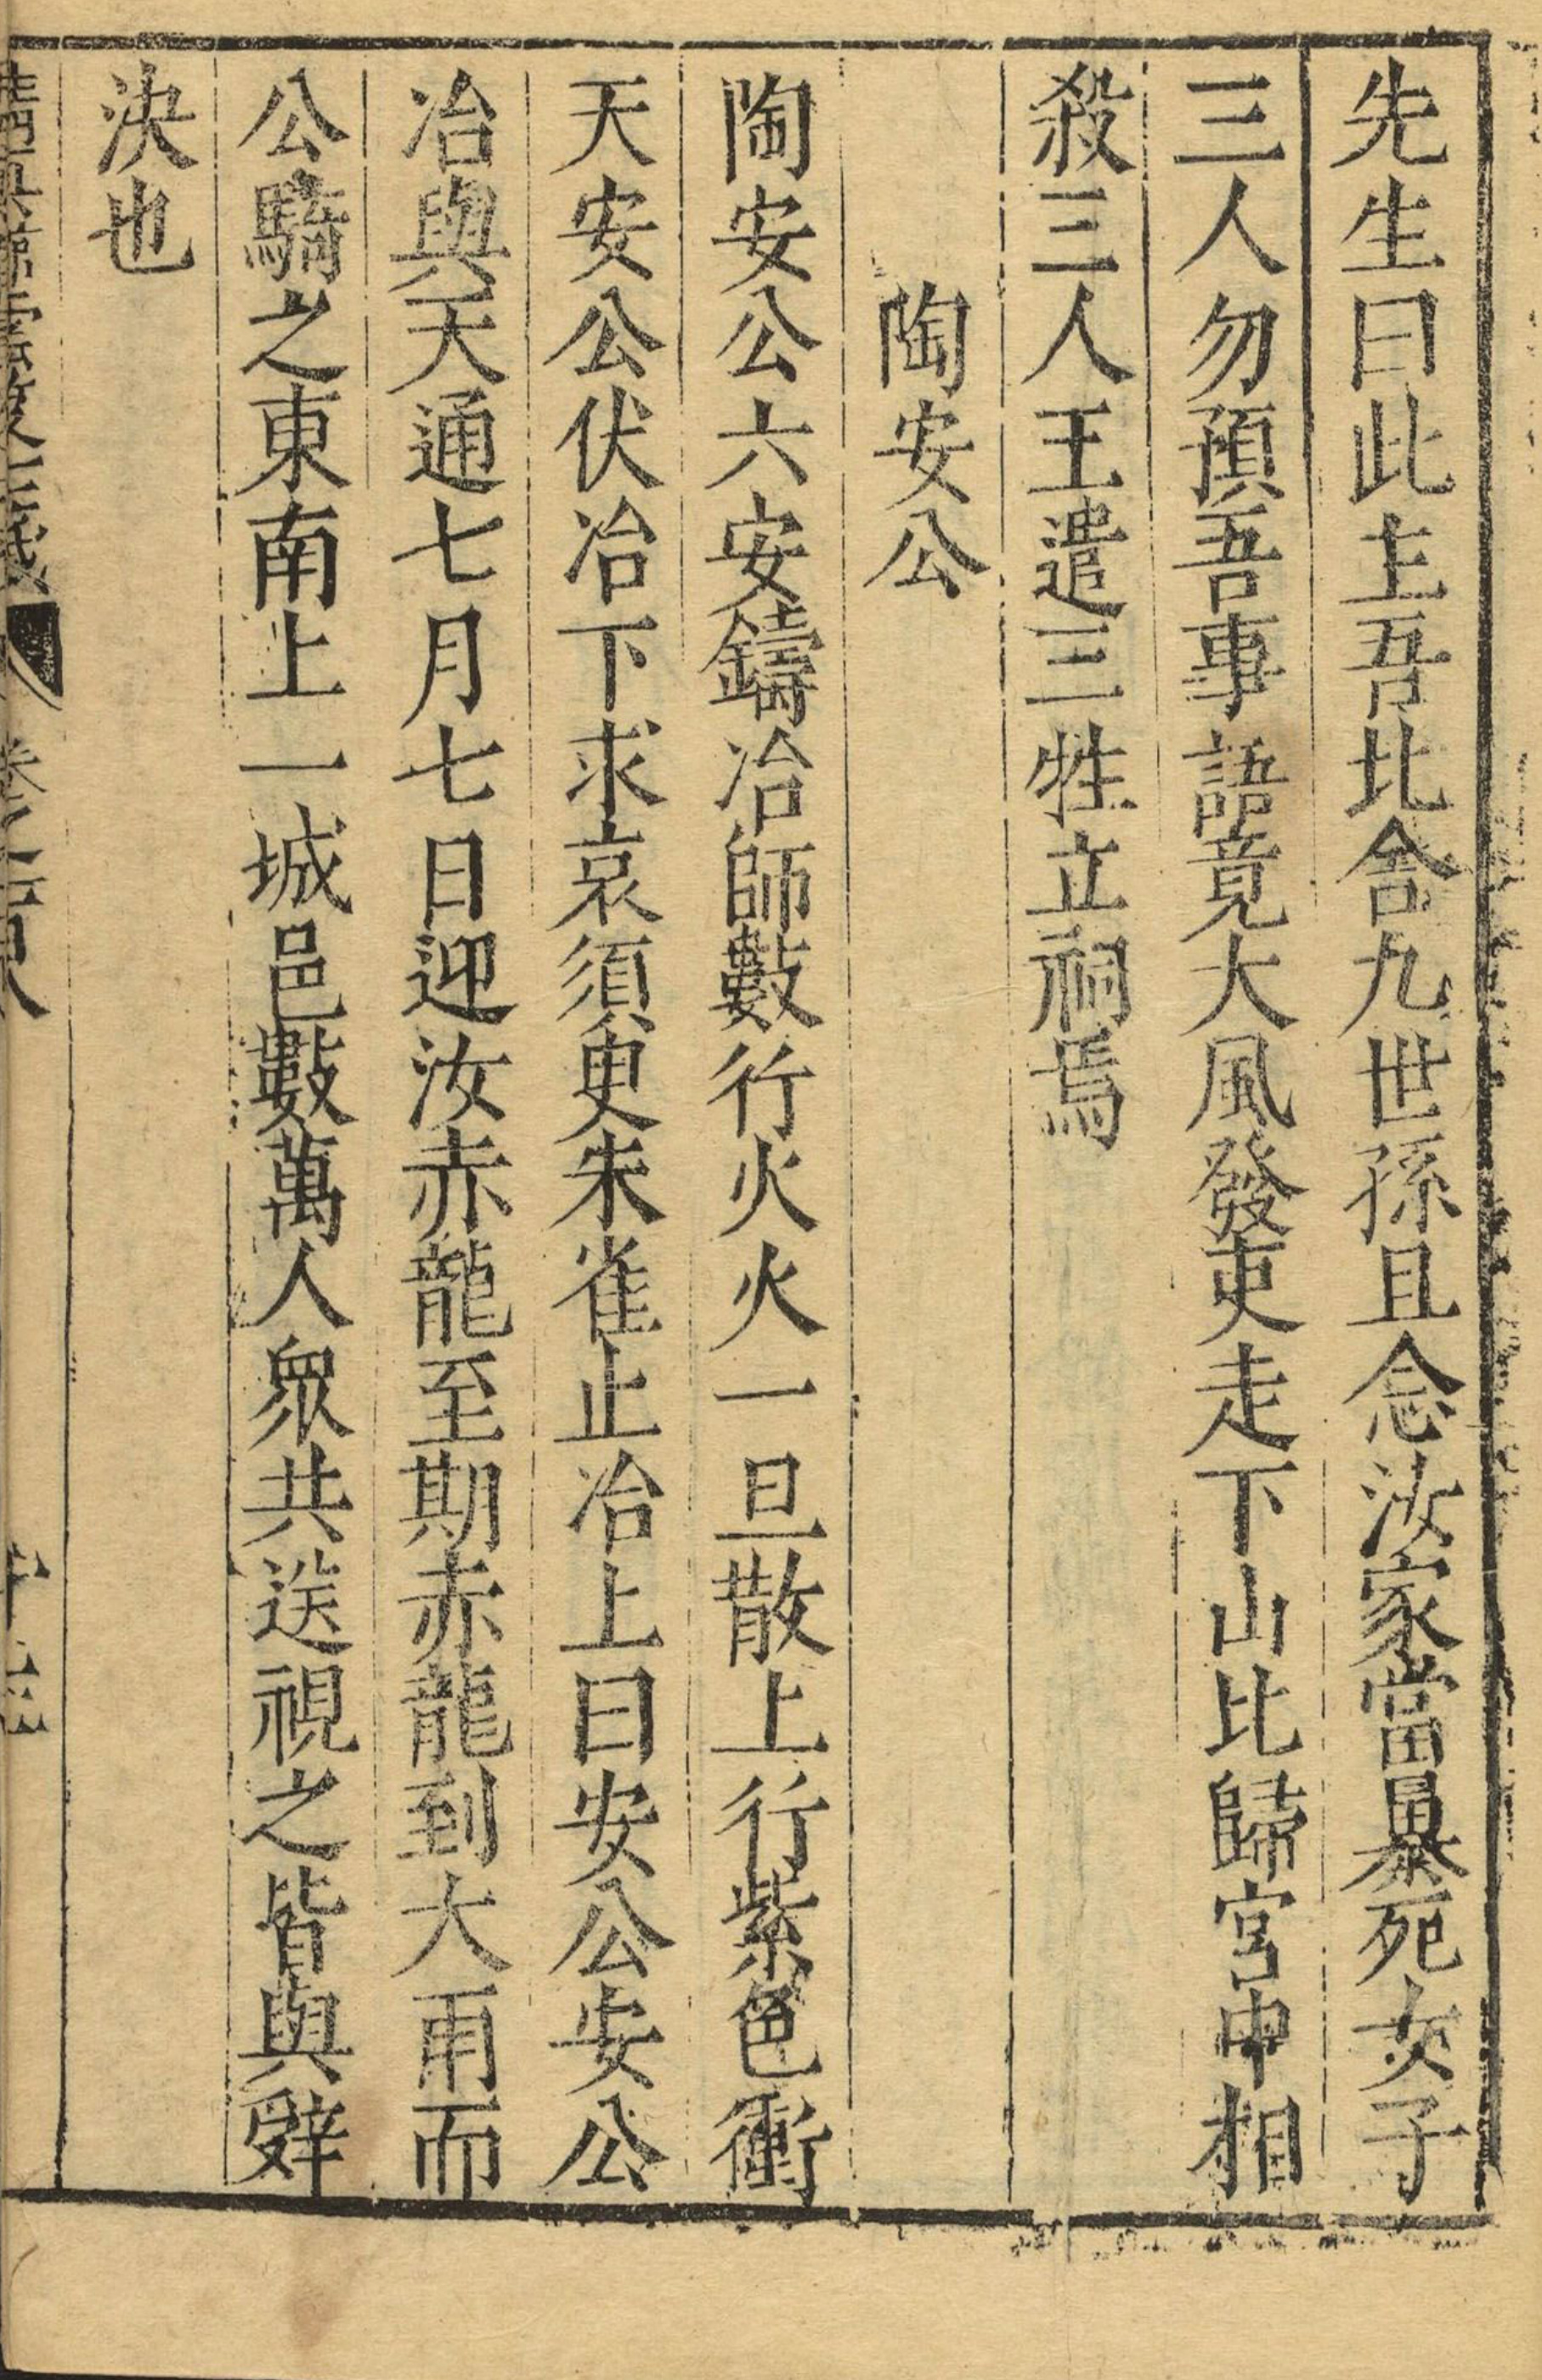 先生曰此主吾比舍九世孫且念汝家當暴死女子
三人勿預吾事語竟大風發吏走下山比歸宮中相
殺三人王遣三牲立祠焉
陶安公
陶安公六安鑄冶師數行火火一旦散上行紫色衝
天安公伏冶下求哀須臾朱雀止冶上曰安公安公
冶與天通七月七日迎汝赤龍至期赤龍到大雨而
公騎之東南上一城邑數萬人衆共送視之皆與辤
決也